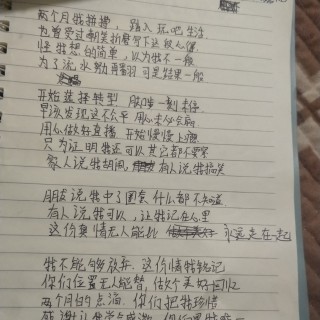 两个月我拼搏，踏入玩吧生活
也曾受过嘲笑折磨
怪我想的简单，以为我不一般
为了流水
开始选择转型 脚步一刻未停
早该发现这不公平 用心未必会赢
用心做好直播 开始慢慢上瘾
只为证明我还可以其它都不要
家人说我胡闹 有人说我搞笑
朋友说我中了圈套 什么都不知道
有人说我可以，让我记在心里
这份真情无人能比 永远走在一起
我不能够放弃 这份情我铭记
你们位置无人能替 做个美好回忆
两个月的点滴 你们把我珍惜